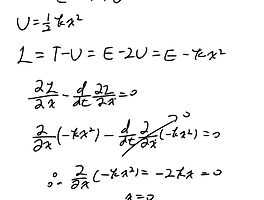 U = ½ kx²
L = T - U = E - 2U = E - kx²
∂L/∂x - d/dt ∂L/∂ẋ = 0
∂/∂x (-kx²) - d/dt ∂/∂ẋ (-kx²) = 0
∴ ∂/∂x (-kx²) = -2kx = 0
x = 0